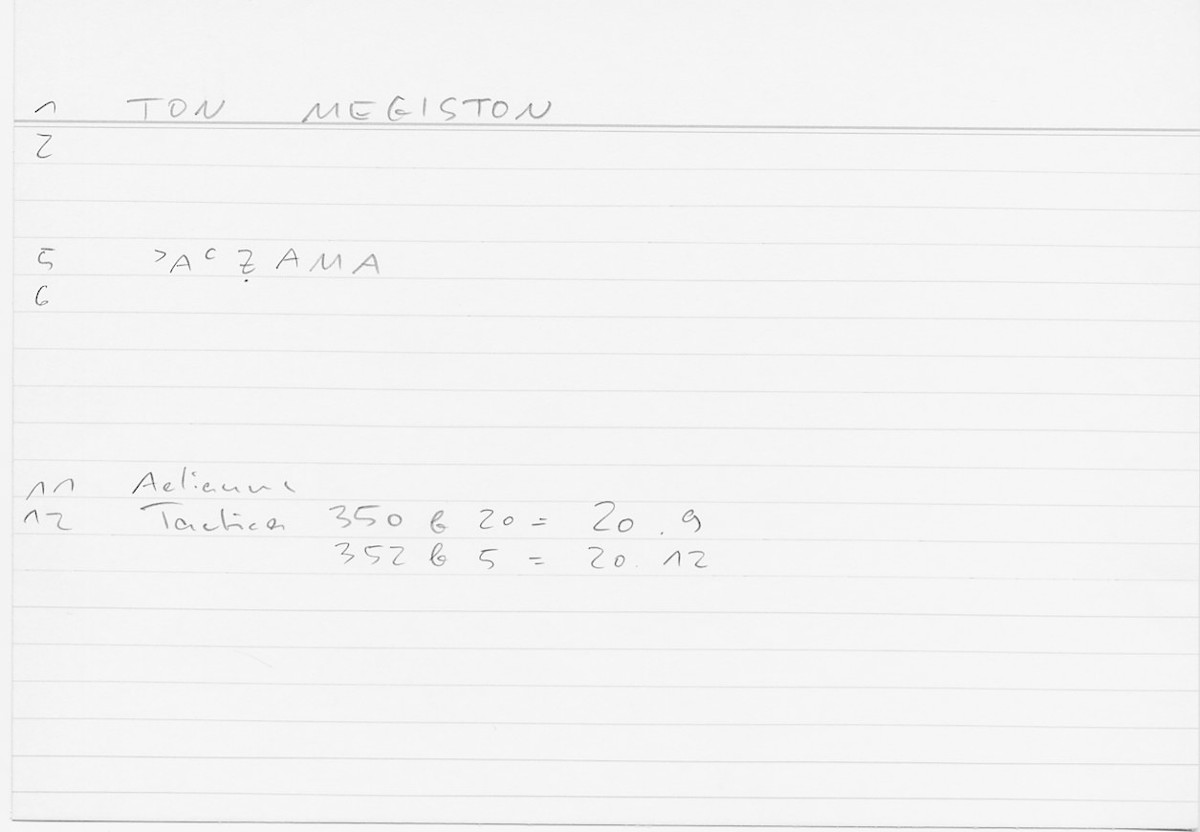 1 TON MEGISTON
2
5 ʾAʿẒAMA
6
11 Aelianus
12 Tactica 350 b 20 = 20.9
352 b 5 = 20.12